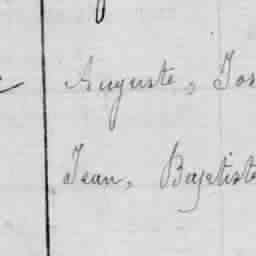 Auguste, Jos
Jean, Baptiste